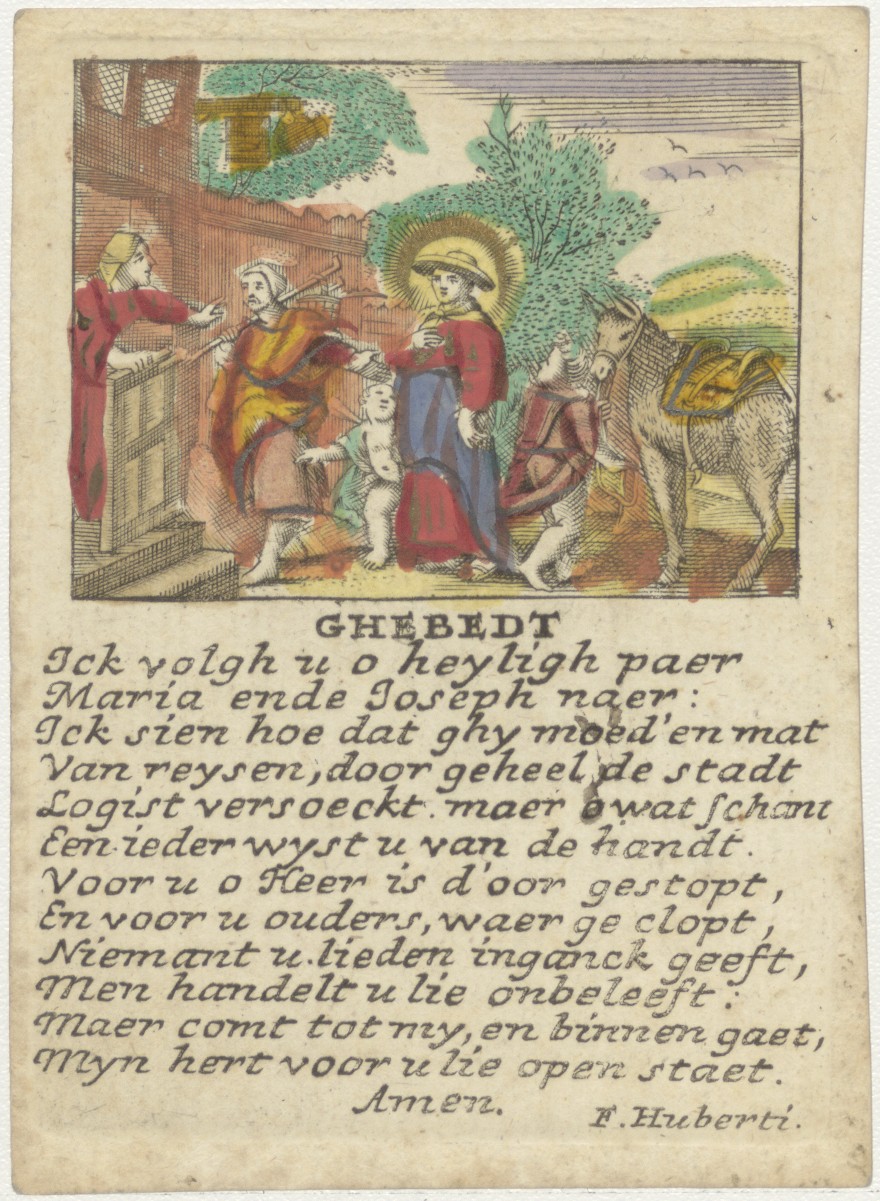 GHEBEDT
Ick volgh u o heyligh paer
Maria ende Joseph naer:
Ick sien hoe dat ghy moed' en mat
Van reysen, door geheel de stadt
Logist versoeckt. maer o wat schant
Een ieder wyst u van de handt.
Voor u o Heer is d'oor gestopt,
En voor u ouders, waer ge clopt,
Niemant u lieden inganck geeft,
Men handelt u lie onbeleeft:
Maer comt tot my, en binnen gaet,
Myn hert voor u lie open staet.
Amen.
F. Huberti.